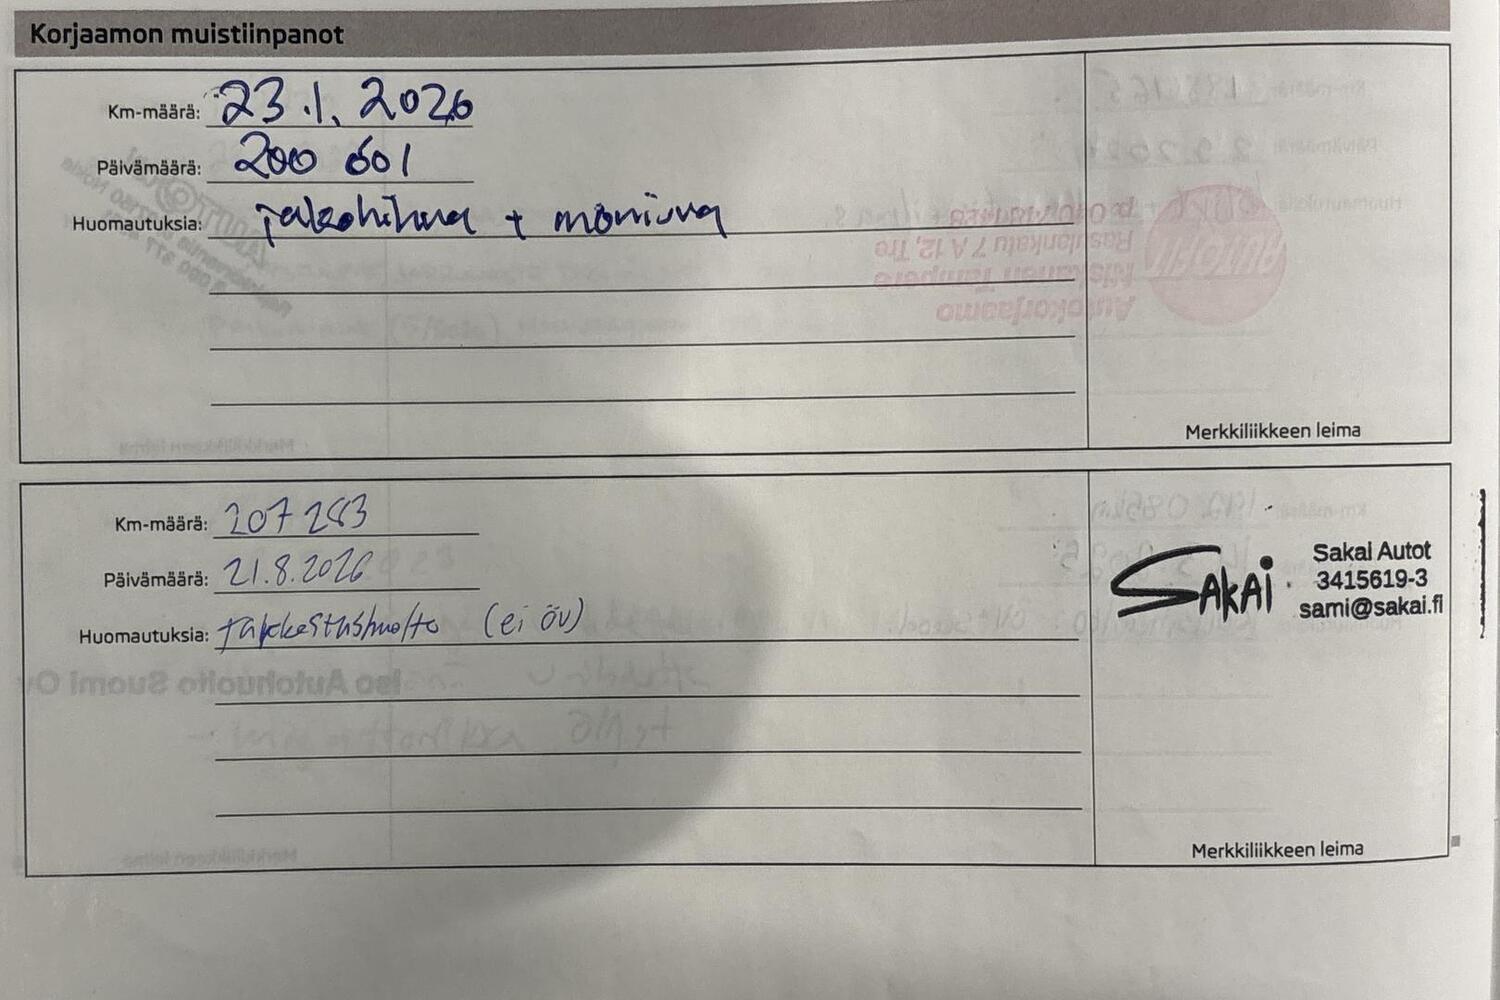 Korjaamon muistiinpanot
Km-määrä: 23.1.2026
Päivämäärä: 200 601
Huomautuksia: jakohihna + moniura
Merkkiliikkeen leima
Km-määrä: 207 283
Päivämäärä: 21.8.2026
Huomautuksia: tarkastushuolto (ei öv)
SAKAI.
Sakai Autot
3415619-3
sami@sakai.fi
Merkkiliikkeen leima